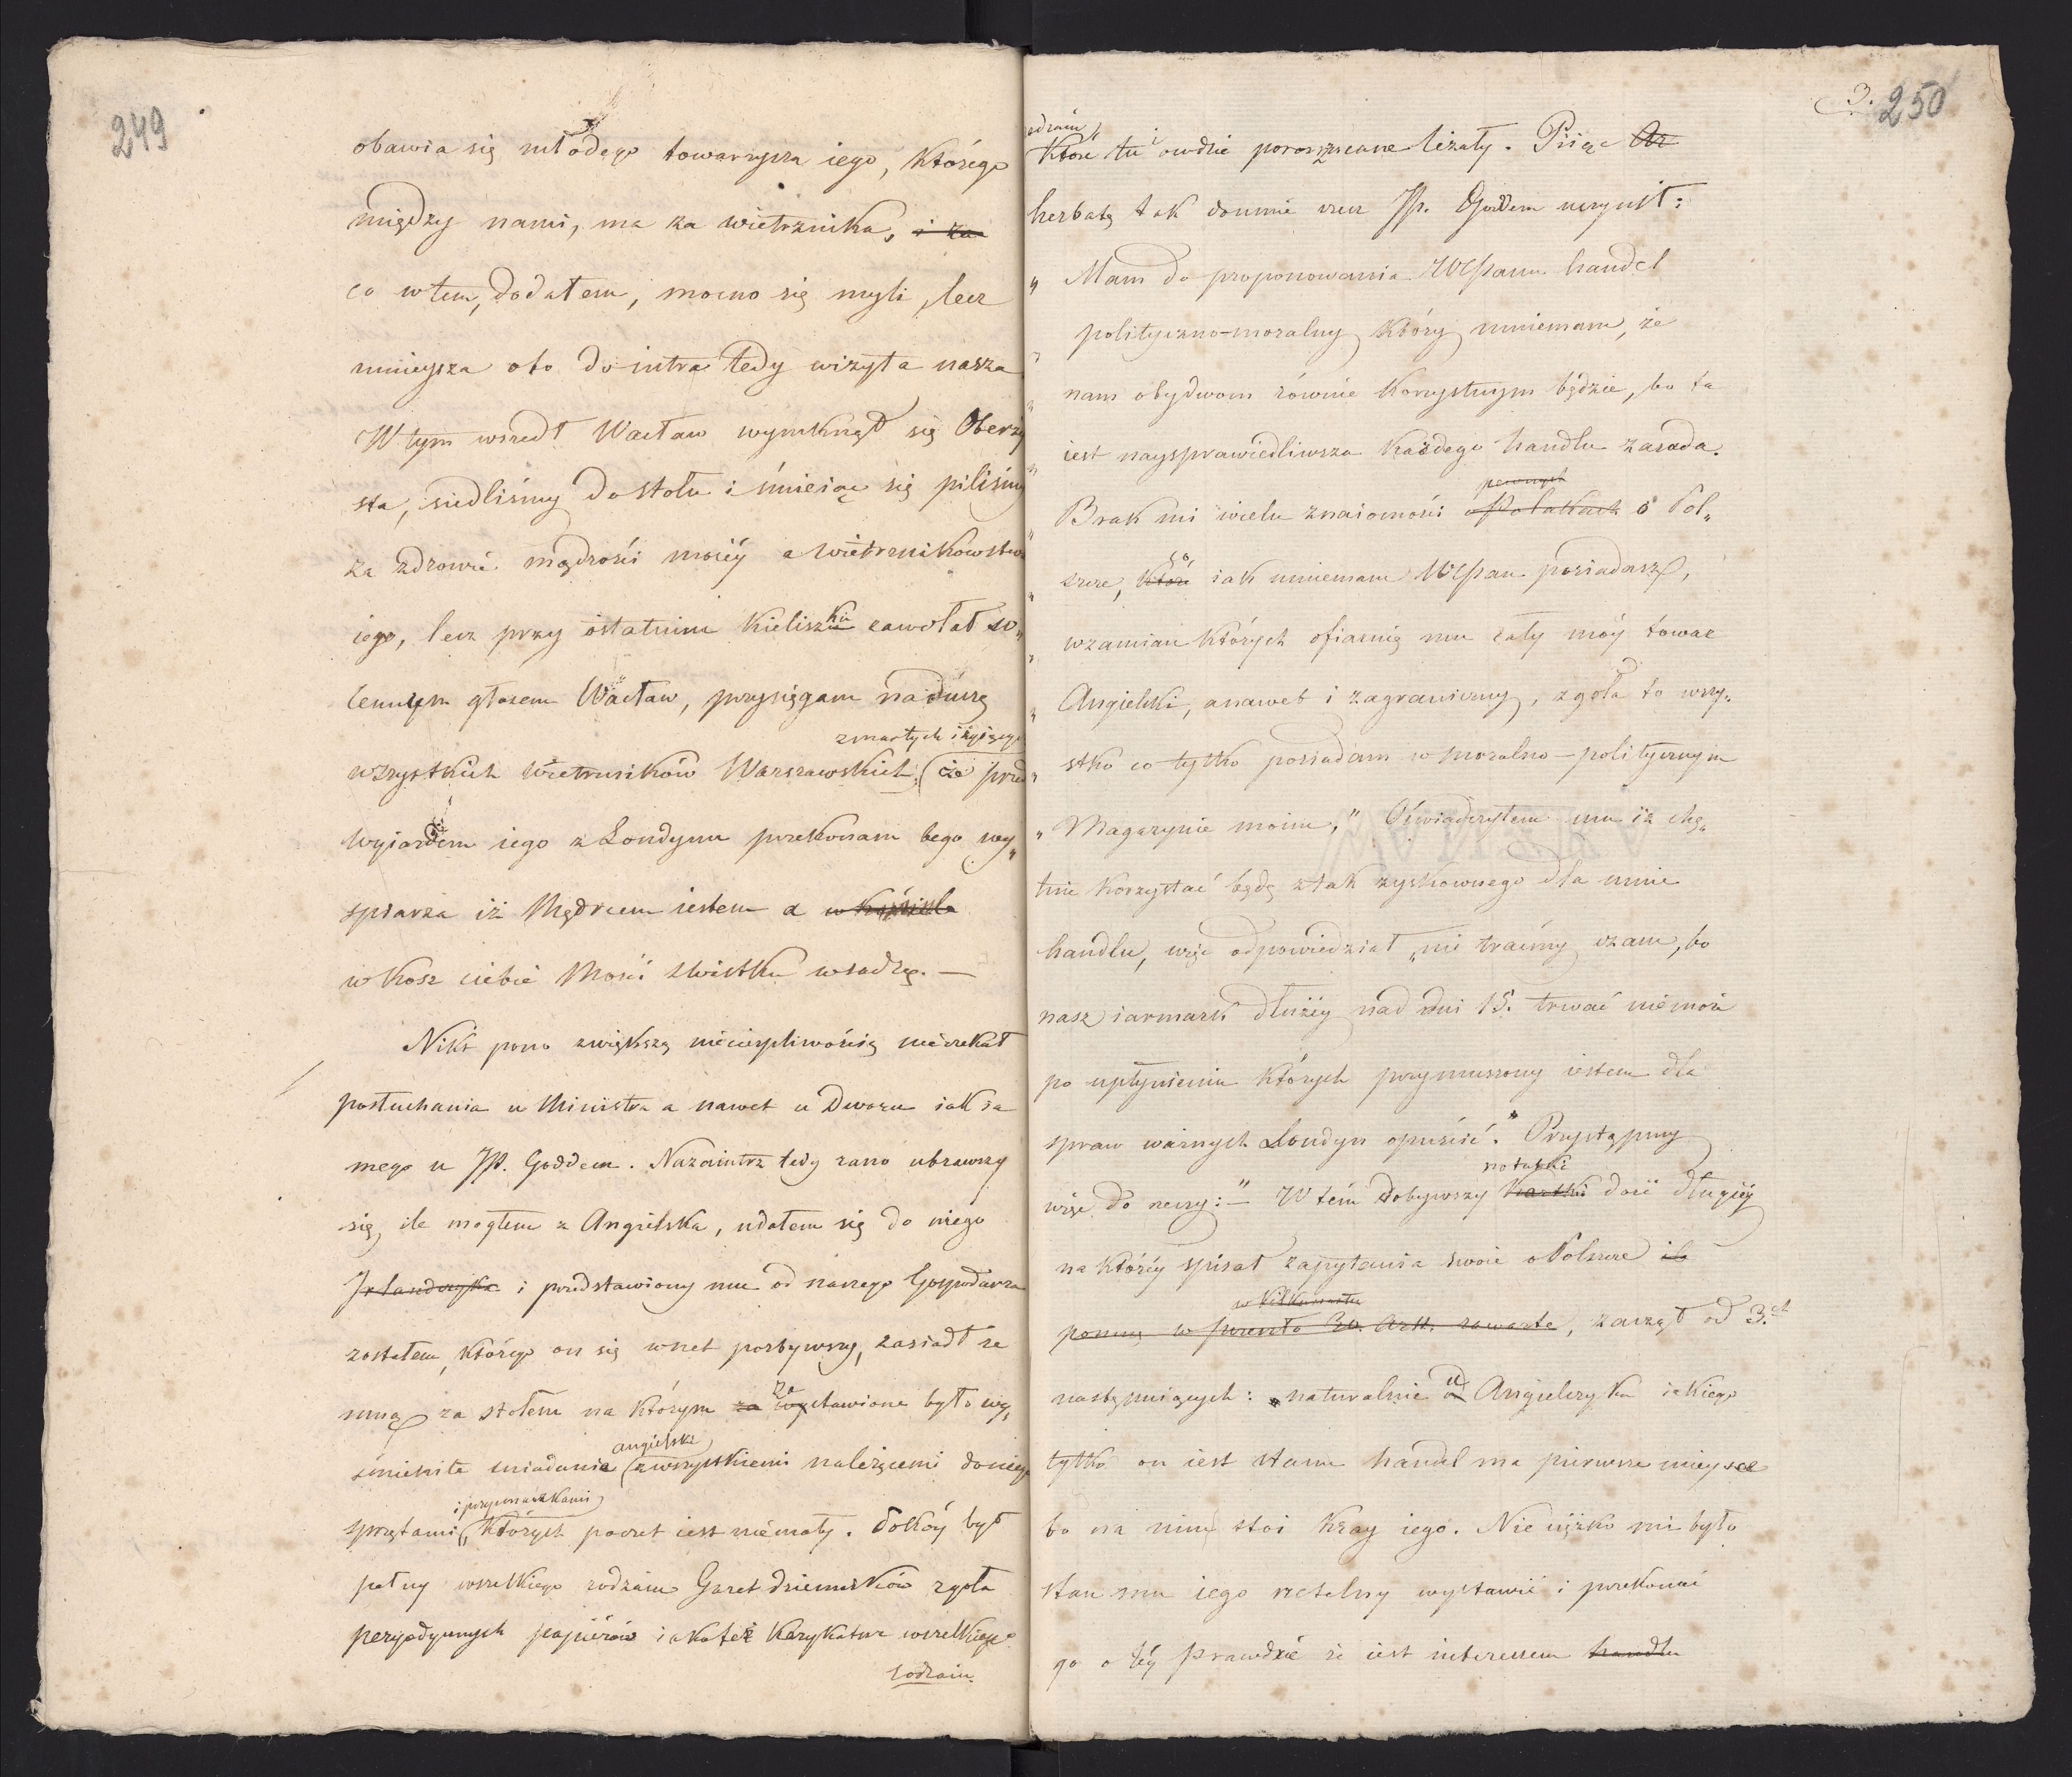 249
obawia się młodego towarzysza iego, którego
między nami, ma za wietrznika, i za
co wtem, dodałem, mocno się myli, lecz
mnieysza oto do iutra tedy wizyta nasza
W tym wszedł Wacław wymknął się Oberży
sta, siedliśmy do stołu i śmieiąc się piliśmy
za zdrowie mądrości moiéy a wietrznikowstwa
iego, lecz przy ostatnim kieliszku zawołał so„
lennym głosem Wacław, przysięgam na duszę
zmarłych i żyiących
wszystkich wietrzników Warszawskich, że przed
wyiazdem iego z Londynu przekonam tego wy„
spiarza iż Mędrcem iestem a w
w kosz ciebie Mości świstku wsadzę. —
Nikt pono zwiększą niecierpliwością nieczekał
posłuchania u Ministra a nawet u Dworu iak ia
mego u JP. Goddem. Nazaiutrz tedy rano ubrawszy
się, ile mogłem z Angielska, udałem się do niego
Irlandczyka i przedstawiony mu od naszego Gospodarza
zostałem, którego on się wnet pozbywszy, zasiadł ze
mną za stołem na którym za zastawione było wy„
angielskie
śmienite sniadanie zwszystkiemi należącemi doniego
i przysmaczkami
sprzętami, których poczet iest niemały. Pokóy był
pełny wszelkiego rodzaiu Gazet dzienników zgoła
peryodycznych papiérów iakoteż karykatur wszelkiego
rodzaiu.
3. 250
rodzaiu
które tu owdzie porozrzucane leżały. Piiąc
herbatę tak doumie rzecz JP. Goddem uczynił:
„ Mam do proponowania WCPanu handel
„ polityczno-moralny który mniemam, że
„ nam obydwom równie korzystnym będzie, bo ta
„ iest nayspra­wiedliwsza każdego handlu zasada.
pewnych
„ Brak mi wielu znaiomości o Polakach o Pol„
co
„ szcze, które iak mniemam WCPan posiadasz,
„ wzamian których ofiaruię mu cały móy towar
„ Angielski, anawet i zagraniczny, zgoła to wszy„
„ stko co tylko posiadam w moralno-politycznym
„ Magazynie moim," Oświadczyłem mu iż chę„
tnie korzystać będę ztak zyskownego dla mnie
handlu, więc odpowiedział „nie traćmy czasu, bo
nasz iarmark dłużéy nad dni 15. trwać niemoże
po upłynieniu których przymuszony iestem dla
spraw ważnych Londyn opuścić." Przystąpmy
notatki
więc do rzeczy:" — W tém dobywszy kartki dość długiéy
na któréy spisał zapytania swoie oPolszcze ile
w kilkunastu
pomnę w 30. ark. zawarte, zaczął od 3.ch
następuiących: naturalnie u Angielczyka iakiego
tylko on iest stanu handel ma pierwsze mieysce
bo na nim stoi Kray iego. Nie ciężko mi było
stan mu iego rzetelny wystawić i przekonać
go o téy prawdzie że iest interessem handlu